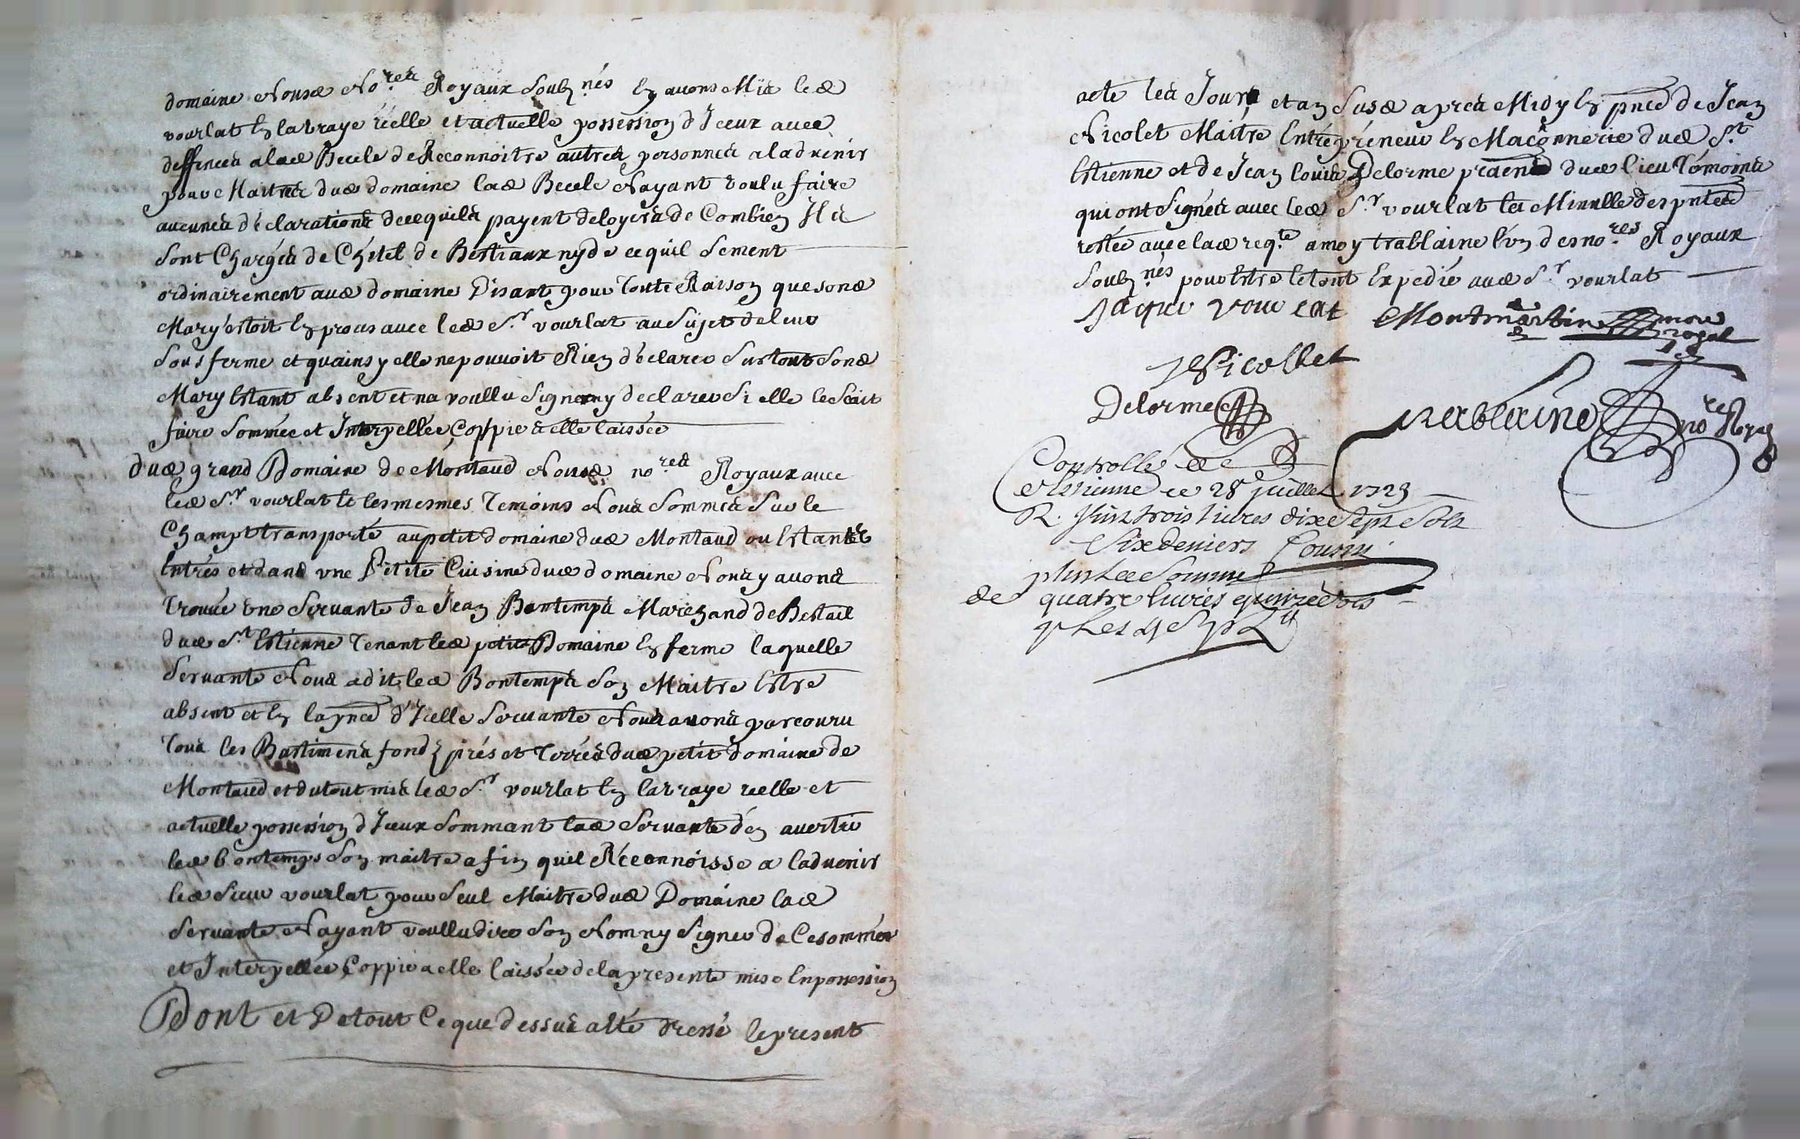 domaine Nousd No.res Royaux soubz.nés En avons Mis led
vourlat En la vraye réelle et actuelle possession d'Iceux avec
deffences alad Becele de Reconnoitre autres personnes aladvenir
pour Maitres dud domaine lad Becele Nayant voulu faire
aucunes déclarations de ce quils payent deloyers de Combien Ils
sont Chargés de Chétel de Bestiaux ny de ce quil sement
ordinairement aud domaine Disant pour toute Raison que sond
Mary estoit En proces avec led S.r vourlat au Sujet de leur
sous ferme et quainsy elle ne pouvoit Rien déclarer surtout sond
Mary Estant absent et na voullu signer ny declarer si elle le scait
faire sommée et Interpellée, Coppie a elle laissée
dud grand Domaine de Montaud Nousd no.res Royaux avec
led S.r vourlat et les mesmes Temoins Nous sommes sur le
Champ transporté au petit domaine dud Montaud ou Estants
Entrés et dans une Petite Cuisine dud domaine Nous y avons
trouvé une servante de Jean Bontemps Marchand de Bestail
dud S.t Estienne Tenant led petit Domaine En ferme laquelle
servante Nous a dit led Bontemps son Maitre Estre
absent et En la pnce d'Icelle servante Nous avons parcouru
tous les Bastiments fondz prés et Terres dud petit domaine de
Montaud et du tout mis led S.r vourlat En la vraye reelle et
actuelle possession d'Iceux sommant lad servante d'en avertir
led bontemps son maitre afin quil Réconnoisse a ladvenir
led sieur vourlat pour seul Maitre dud Domaine lad
servante Nayant voullu dire son Nom ny signer de Ce sommée
et Interpellée Coppie a elle laissée de la presente mise En possession
Dont et De tout Ce que dessus a Eté dressé le present
acte les Jour et an susd apres Midy En pnce de Jean
Nicolet Maitre Entrepreneur En Maçonnerie dud S.t
Estienne et de Jean Louis Delorme dud lieu Témoins
qui ont signés avec led S.r vourlat la Minutte des pntes
restée avec lad req.te a moy trablaine l'un des no.res Royaux
soubz.nés pour Estre le tout Expedié aud S.r vourlat
Jaque vourlat Montmartin no.re royal
J Nicollet
Delorme
trablaine no.re Royal
Controllé a S.t
Estienne ce 28 juillet 1723
R. trois livres dixe sept sols
Six deniers
plus la somme
de quatre livres quinze sols